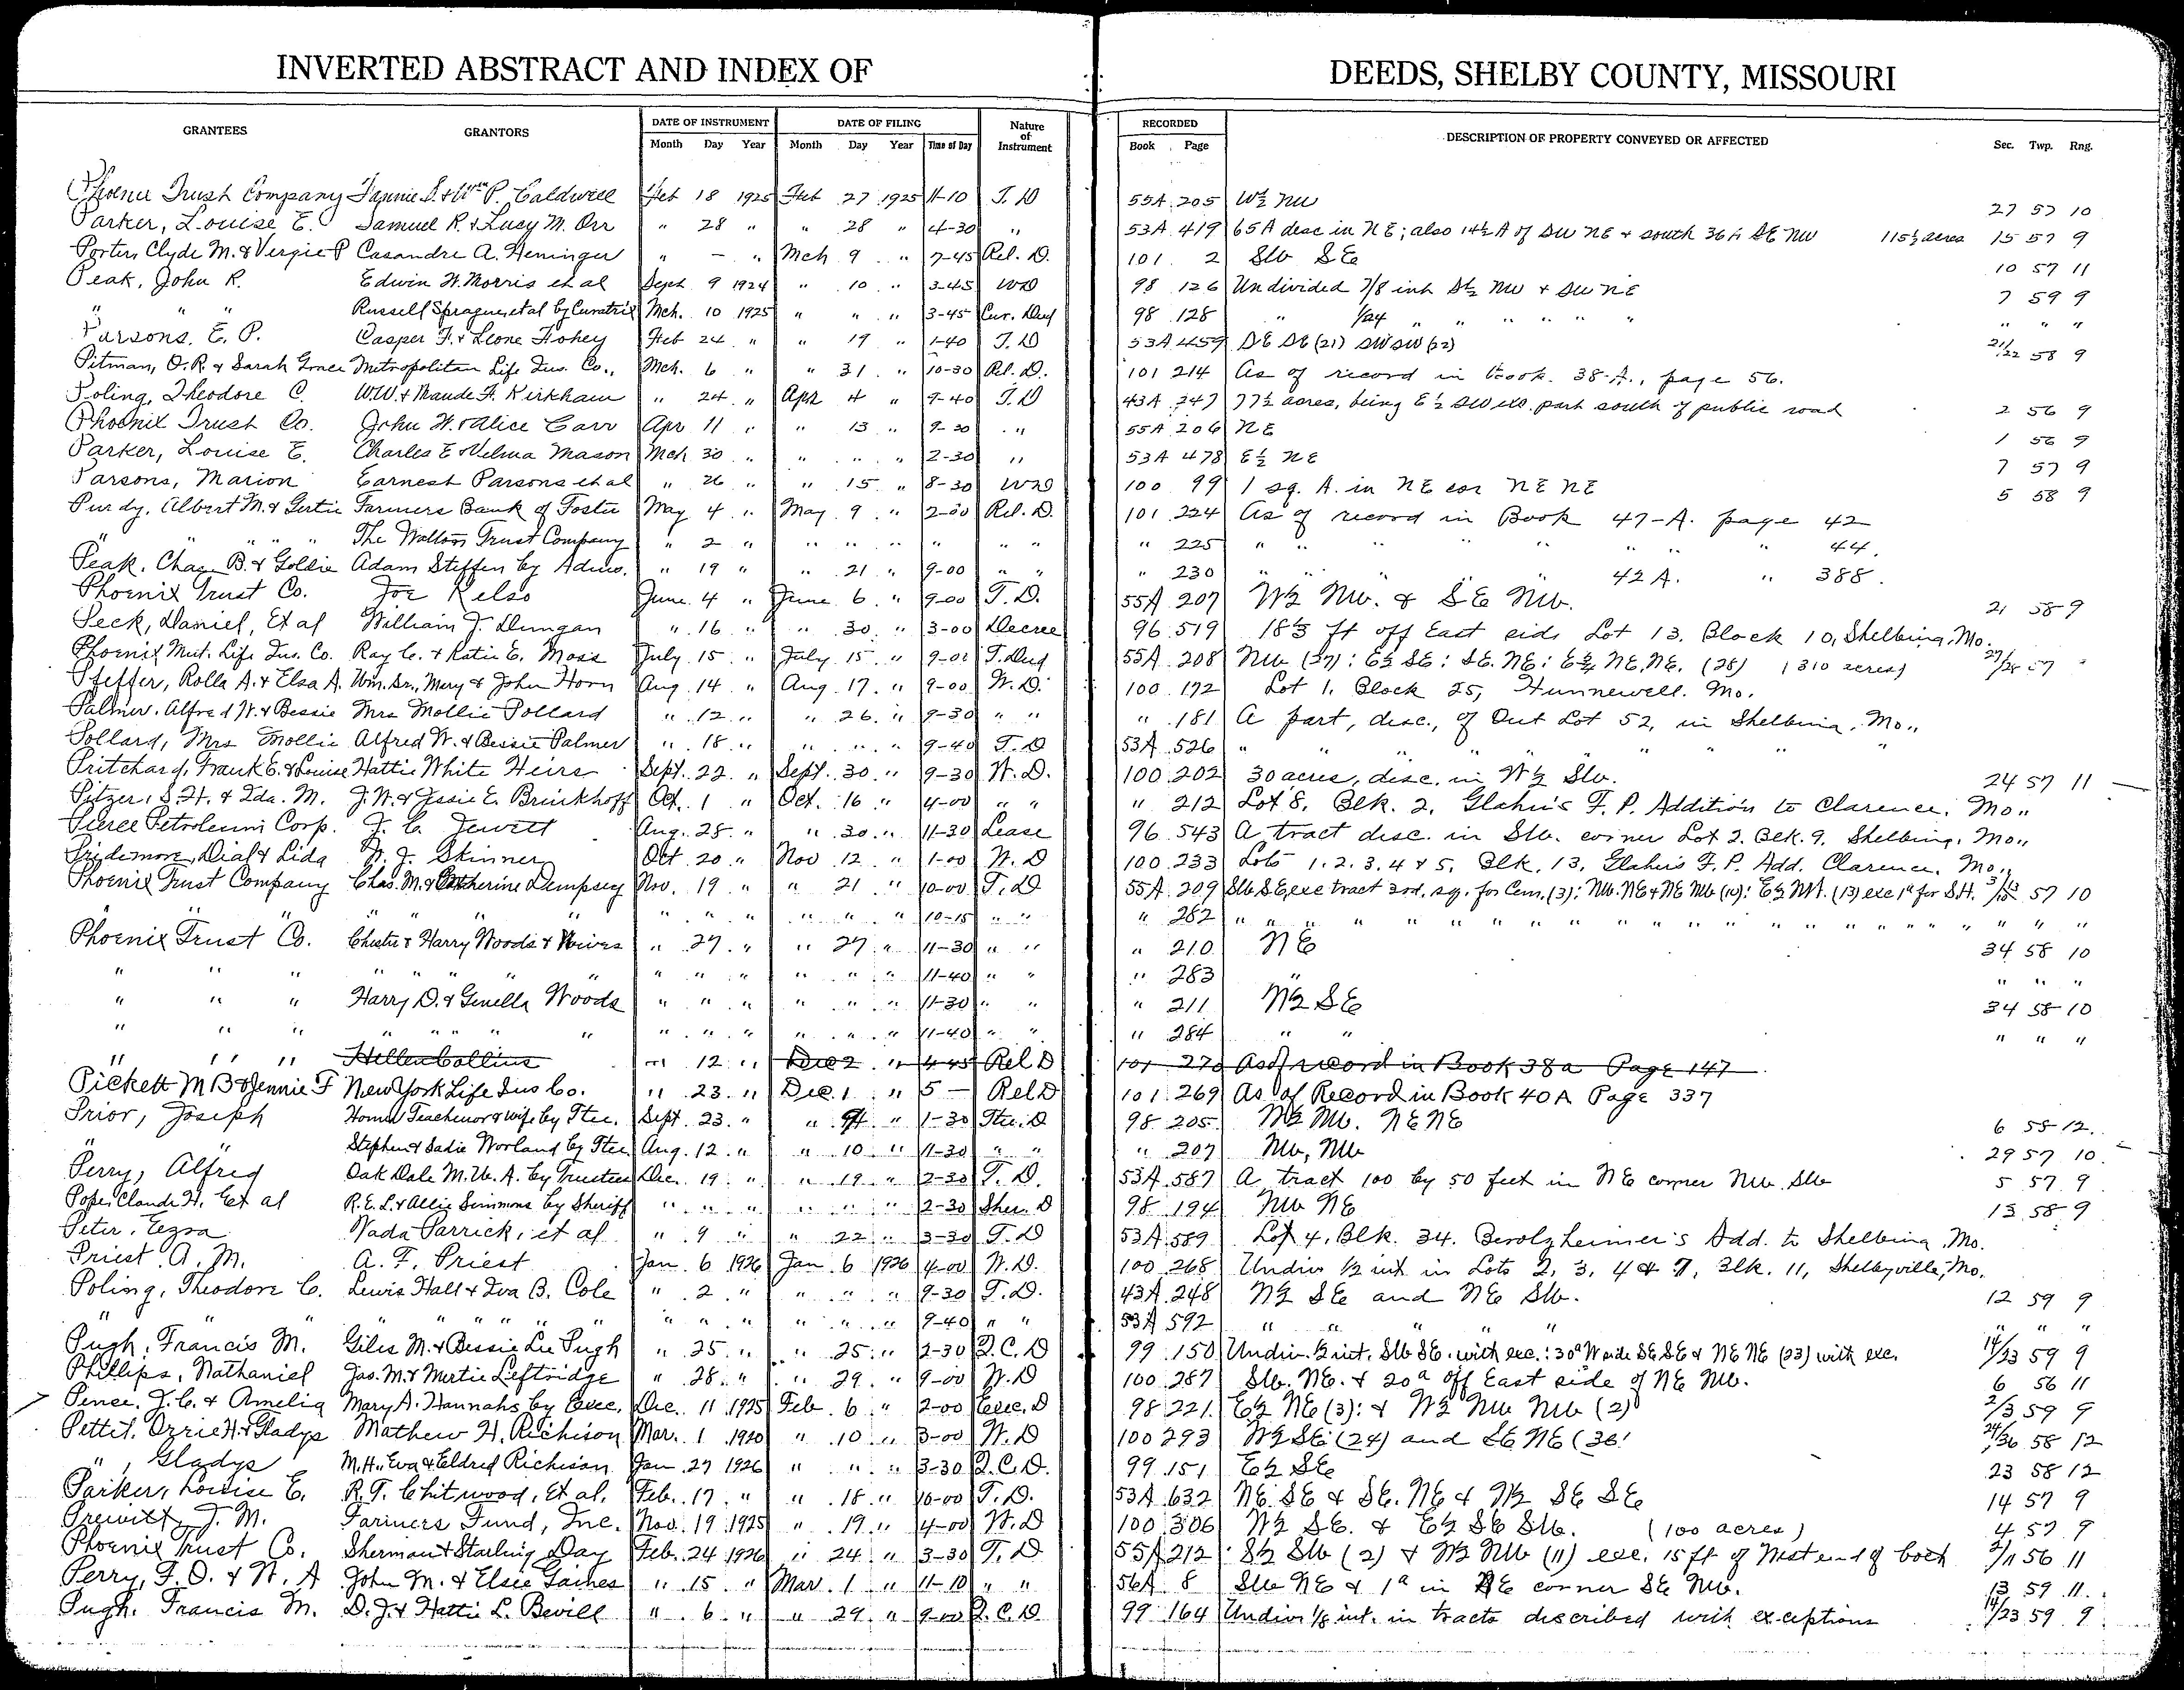 INVERTED ABSTRACT AND INDEX OF DEEDS, SHELBY COUNTY, MISSOURI
GRANTEES GRANTORS DATE OF INSTRUMENT DATE OF FILING Nature of Instrument RECORDED DESCRIPTION OF PROPERTY CONVEYED OR AFFECTED
Month Day Year Month Day Year Time of Day Book Page Sec. Twp. Rng.
Phoenix Trust Company Fannie S. & Wm P. Caldwell Feb 18 1925 Feb 27 1925 11-10 T. D 55A 205 W½ NW 27 57 10
Parker, Louise E. Samuel R. & Lucy M. Orr " 28 " " 28 " 4-30 " 53A 419 65 A desc in NE; also 14½ A of SW NE & south 36 A SE NW 115½ acres 15 57 9
Porter, Clyde M. & Vergie P Casandra A. Heninger " - " Mch 9 " 7-45 Rel. D. 101 2 SW SE 10 57 11
Peak, John R. Edwin W. Morris et al Sept 9 1924 " 10 " 3-45 WD 98 126 Undivided 7/8 int S½ NW & SW NE 7 59 9
" " " Russell Sprague, et al by Curatrix Mch. 10 1925 " " " 3-45 Cur. Deed 98 128 " 1/24 " " " " " " " "
Parsons, E. P. Casper F. & Leone Hohey Feb 24 " " 19 " 1-40 T. D 53A 459 SE SE (21) SW SW (22) 21/22 58 9
Pitman, O. R. & Sarah Grace Metropolitan Life Ins. Co., Mch. 6 " " 31 " 10-30 Rel. D. 101 214 As of record in Book. 38-A., page 56.
Poling, Theodore C. W.W. & Maude F. Kirkham " 24 " Apr 4 " 9-40 T. D 43A 247 77½ acres, being E½ SW exc. part south of public road 2 56 9
Phoenix Trust Co. John W. & Alice Carr Apr 11 " " 13 " 9-30 " 55A 206 NE 1 56 9
Parker, Louise E. Charles E & Velma Mason Mch 30 " " " " 2-30 " 53A 478 E½ NE 7 57 9
Parsons, Marion Earnest Parsons et al " 26 " " 15 " 8-30 WD 100 99 1 sq. A. in NE cor NE NE 5 58 9
Purdy, Albert M. & Gertie Farmers Bank of Foster May 4 " May 9 " 2-00 Rel. D. 101 224 As of record in Book 47-A. page 42
" " " " The Walton Trust Company " 2 " " " " " " " " 225 " " " " " " 44.
Peak, Chas. B. & Goldie Adam Steffen by Admr. " 19 " " 21 " 9-00 " " " 230 " " " " 42 A. " 388.
Phoenix Trust Co. Joe Kelso June 4 " June 6 " 9-00 T. D. 55A 207 W½ NW. & SE NW. 21 58 9
Peck, Daniel, Et al William J. Dungan " 16 " " 30 " 3-00 Decree 96 519 18⅓ ft off East side Lot 13, Block 10, Shelbina, Mo.
Phoenix Mut. Life Ins. Co. Ray C. & Katie E. Moss July 15 " July 15 " 9-01 T. Deed 55A 208 NW (27): E½ SE: SE. NE: E¾ NE, NE. (28) (310 acres) 27/28 57
Pfeffer, Rolla A. & Elsa A. Wm. Sr., Mary & John Horn Aug. 14 " Aug. 17 " 9-00 W. D. 100 172 Lot 1, Block 25, Hunnewell. Mo.
Palmer, Alfred W. & Bessie Mrs Mollie Pollard " 12 " " 26 " 9-30 " " " 181 A part, desc., of Out Lot 52, in Shelbina, Mo.,
Pollard, Mrs Mollie Alfred W. & Bessie Palmer " 18 " " " " 9-40 T. D 53A 526 " " " " " " " "
Pritchard, Frank E. & Louise Hattie White Heirs Sept. 22 " Sept. 30 " 9-30 W. D. 100 202 30 acres, desc. in W½ SW. 24 57 11
Pitzer, S. H. & Ida. M. J. W. & Jessie E. Brinkhoff Oct. 1 " Oct. 16 " 4-00 " " " 212 Lot 8, Blk. 2, Glahn's F. P. Addition to Clarence, Mo.,
Pierce Petroleum Corp. J. C. Jewett Aug. 28 " " 30 " 11-30 Lease 96 543 A tract desc. in SW. corner Lot 2. Blk. 9. Shelbina, Mo.,
Pridemore, Dial & Lida W. J. Skinner Oct 20 " Nov 12 " 1-00 W. D 100 233 Lots 1. 2. 3. 4 & 5, Blk. 13, Glahn's F. P. Add. Clarence, Mo.,
Phoenix Trust Company Chas. M. & Catherine Dempsey Nov. 19 " " 21 " 10-00 T. D 55A 209 SW SE, exc tract 2rd. sq. for Cem. (3): NW. NE & NE NW (10): E½ NW. (13) exc 1a for S.H. 57 10
" " " " " " " " " " " " 10-15 " " " 282 " " " " " " " " " " " "
Phoenix Trust Co. Chester & Harry Woods & Wives " 27 " " 27 " 11-30 " " " 210 NE 34 58 10
" " " " " " " " " " " " " " 11-40 " " " 283 " " " "
" " " Harry D. & Genella Woods " " " " " " 11-30 " " " 211 W½ SE 34 58 10
" " " " " " " " " " " " " " 11-40 " " " 284 " " " " "
" " " Hellen Collins " 12 " Dec 2 " 4-45 Rel D 101 270 As of record in Book 38a Page 147
Pickett M B & Jennie F New York Life Ins Co. " 23 " Dec. 1 " 5 — Rel D 101 269 As of Record in Book 40A Page 337
Prior, Joseph Homer Teachenor & wife by Ttee. Sept. 23 " " " 1-30 Ttee. D 98 205 W½ NW. NE NE 6 58 12
" " Stephen & Sadie Worland by Ttee Aug. 12 " " 10 " 11-30 " " " 207 NW, NW 29 57 10
Perry, Alfred Oak Dale M. W. A. by Trustees Dec. 19 " " 19 " 2-30 T. D. 53A 587 A tract 100 by 50 feet in NE corner NW. SW 5 57 9
Pope, Claude H. Et al R. E. L. & Allie Simmons by Sheriff " " " " " " 2-30 Sher. D 98 194 NW NE 13 58 9
Peter, Ezra Nada Parrick, et al " 9 " " 22 " 3-30 T. D 53A 589 Lot 4, Blk. 34. Berolzheimer's Add. to Shelbina, Mo.
Priest A. M. A. F. Priest Jan 6 1926 Jan. 6 1926 4-00 W. D. 100 268 Undiv ½ int in Lots 2, 3, 4 & 7, Blk. 11, Shelbyville, Mo.
Poling, Theodore C. Lewis Hall & Iva B. Cole " 2 " " " " 9-30 T. D. 43A 248 W½ SE and NE SW. 12 59 9
" " " " " " " " " " " " " 9-40 " " 53A 592 " " " " " " " "
Pugh, Francis M. Giles M. & Bessie Lee Pugh " 25 " " 25 " 2-30 Q. C. D 99 150 Undiv. ½ int. SW SE. with exc.: 30a W side SE SE & NE NE (23) with exc. 14/23 59 9
Phillips, Nathaniel Jas. M. & Mertie Leftridge " 28 " " 29 " 9-00 W. D 100 287 SW. NE. & 20a off East side of NE NW. 6 56 11
Pence, J. C. & Amelia Mary A. Hannahs by Exec. Dec. 11 1925 Feb. 6 " 2-00 Exec. D 98 221 E½ NE (3): & W½ NW NW (2) 2/3 59 9
Pettit, Ozzie H. & Gladys Mathew H. Richison Mar. 1 1920 " 10 " 3-00 W. D 100 293 W½ SE (24) and SE NE (36) 24/36 58 12
" , Gladys M. H., Eva & Eldred Richison Jan 27 1926 " " " 3-30 Q. C. D. 99 151 E½ SE 23 58 12
Parker, Louise E. R. T. Chitwood, Et al. Feb. 17 " " 18 " 10-00 T. D. 53A 632 NE. SE & SE. NE & W½ SE SE 14 57 9
Prewitt, J. M. Farmers Fund, Inc. Nov. 19 1925 " 19 " 4-00 W. D 100 306 W½ SE. & E½ SE SW. (100 acres) 4 57 9
Phoenix Trust Co. Sherman & Starling Day Feb. 24 1926 " 24 " 3-30 T. D 55A 212 S½ SW (2) & W½ NW (11) exc. 15 ft of West end of both 2/11 56 11
Perry, F. O. & W. A John M. & Elsie Gaines " 15 " Mar. 1 " 11-10 " " 56A 8 SW NE & 1a in NE corner SE NW. 13 59 11
Pugh, Francis M. D. J. & Hattie L. Bevill " 6 " " 29 " 9-00 Q. C. D. 99 164 Undiv 1/8 int. in tracts described with exceptions 14/23 59 9